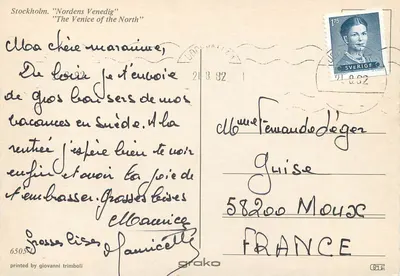 Stockholm. "Nordens Venedig"
"The Venice of the North"
Ma chère marainne,
De loin je t'envoie
de gros baisers de mes
vacances en Suède. A la
rentrée j'espère bien te voir
enfin et avoir la joie de
t'embrasser. Grosses bises
Maurice
Grosses bises
6505
printed by giovanni trimboli
grako
21.8.82
SVERIGE
21.8.82
Mme Fernande Léger
Guise
58200 Moux
FRANCE